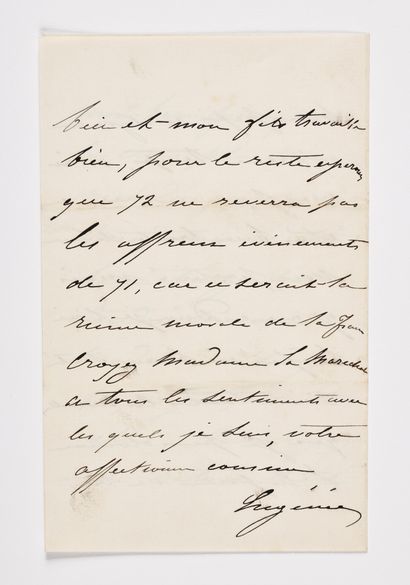 bien et mon fils travaille
bien, pour le reste esperons
que 72 ne reverra pas
les affreux événements
de 71, car ce serait la
ruine morale de la Fran
Croyez Madame la Marechal
a tous les sentiments avec
les quels je suis, votre
affectionée cousine
Eugénie